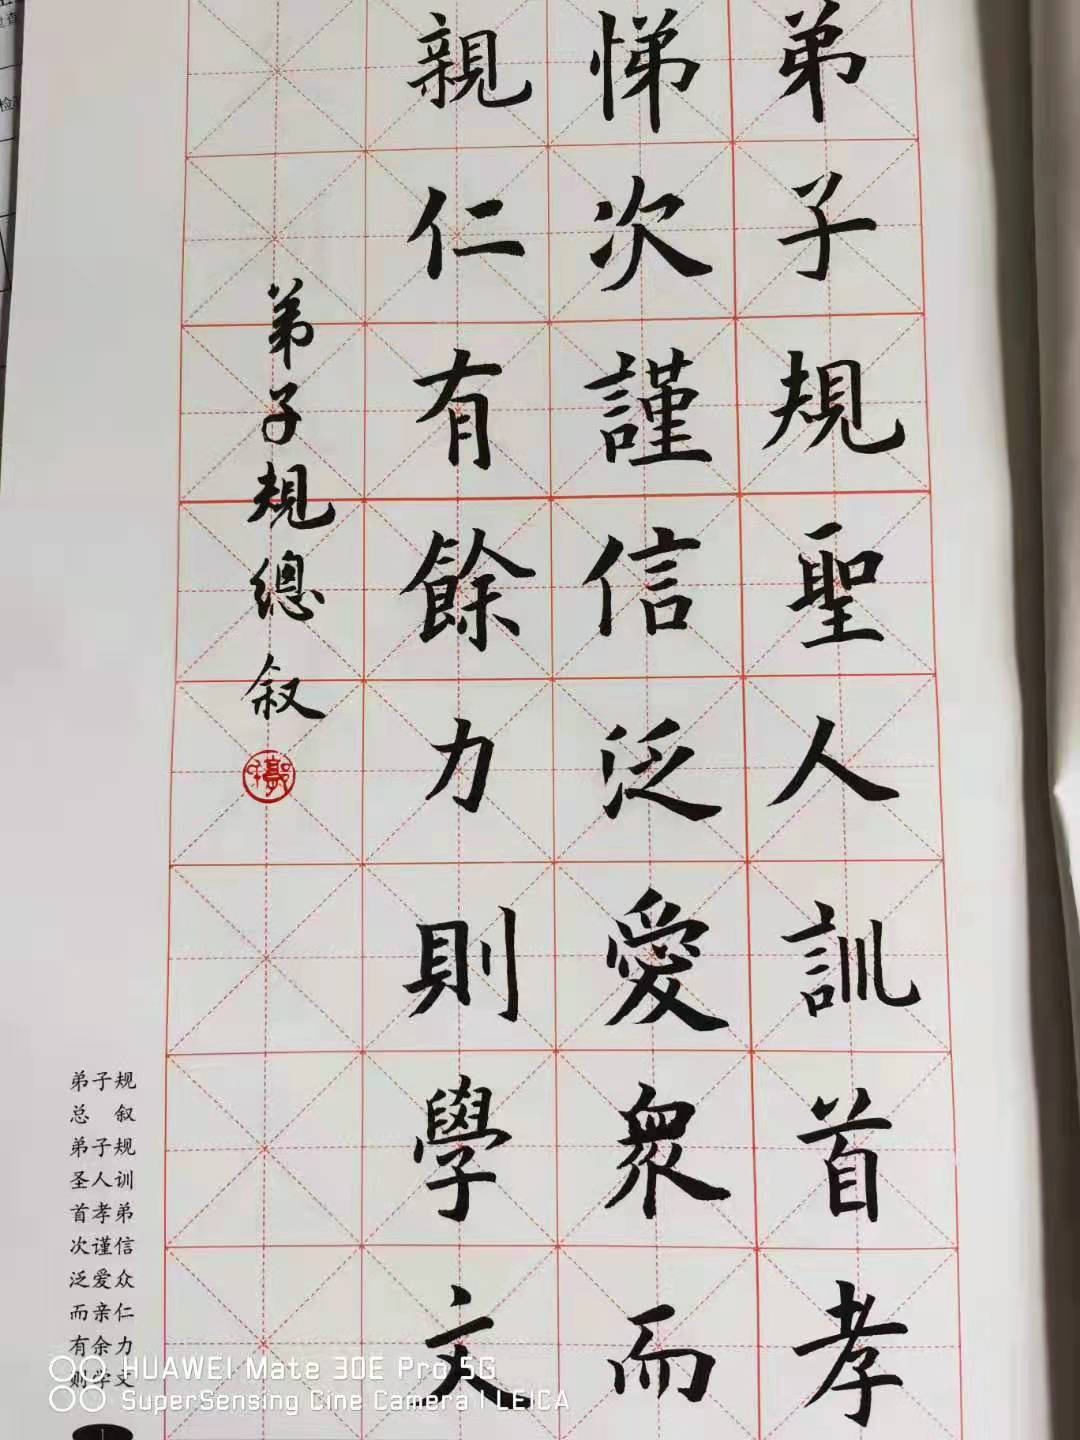 弟子規聖人訓首孝
悌次謹信泛愛衆而
親仁有餘力則學文
弟子規總叙
弟子规
总 叙
弟子规
圣人训
首孝弟
次谨信
泛爱众
而亲仁
有余力
则学文
HUAWEI Mate 30E Pro 5G
SuperSensing Cine Camera | LEICA
1